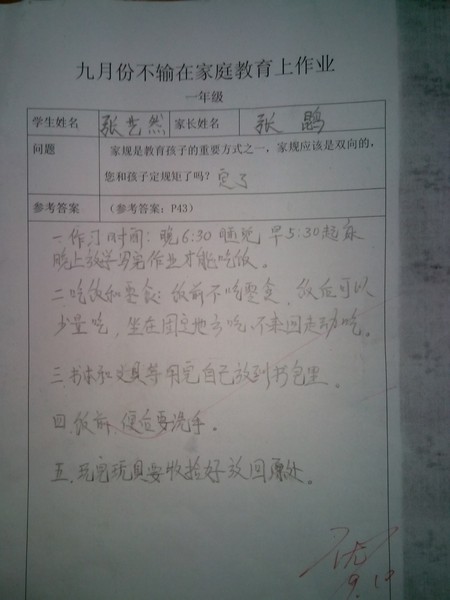 九月份不输在家庭教育上作业
一年级
学生姓名 张艺然 家长姓名 张鹍
问题 家规是教育孩子的重要方式之一，家规应该是双向的，
您和孩子定规矩了吗？ 定了
参考答案 （参考答案：P43）
一.作汀时间：晚6:30睡觉 早5:30起床
晚上放学写完作业才能吃饭。
二.吃饭和零食：饭前不吃零食，饭后可以
少量吃，坐在固定地方吃，不来回走动吃。
三.书本和文具等用完自己放到书包里。
四.饭前，便后要洗手。
五.玩完玩具要收捡好放回原处。
优
9.10